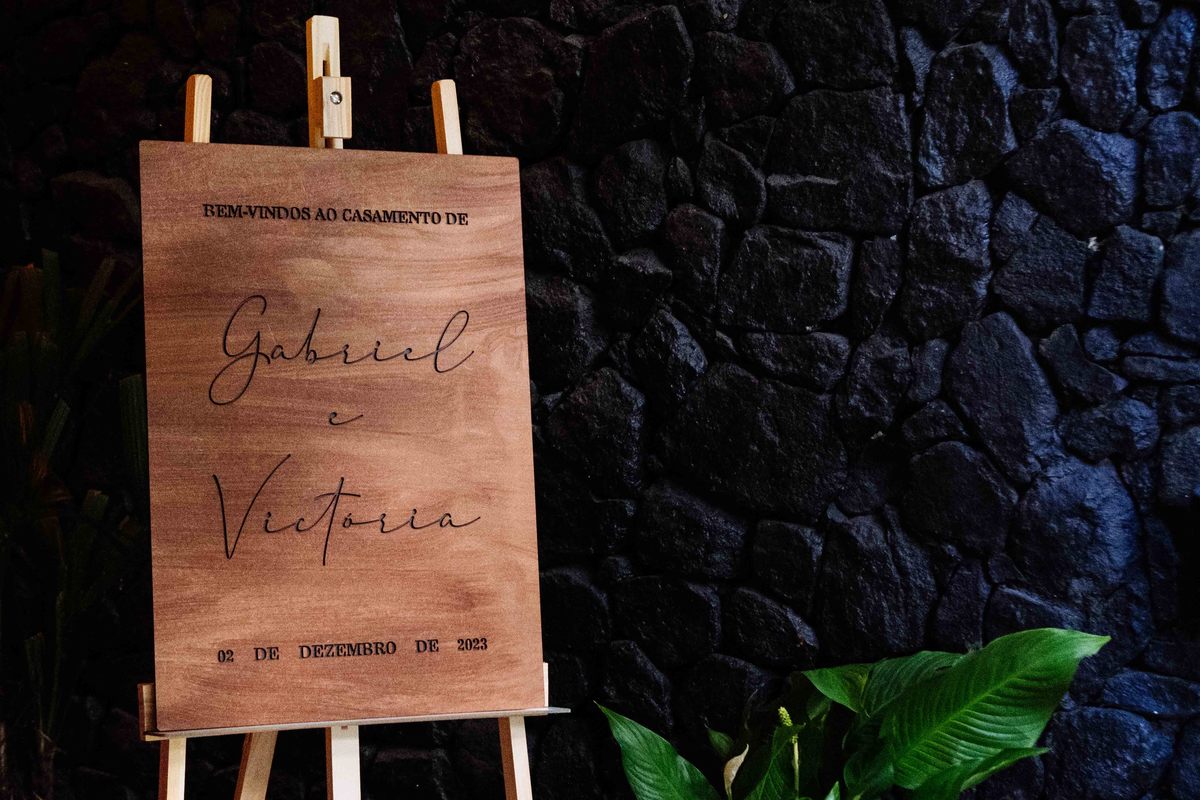 BEM-VINDOS AO CASAMENTO DE
Gabriel
e
Victoria
02 DE DEZEMBRO DE 2023